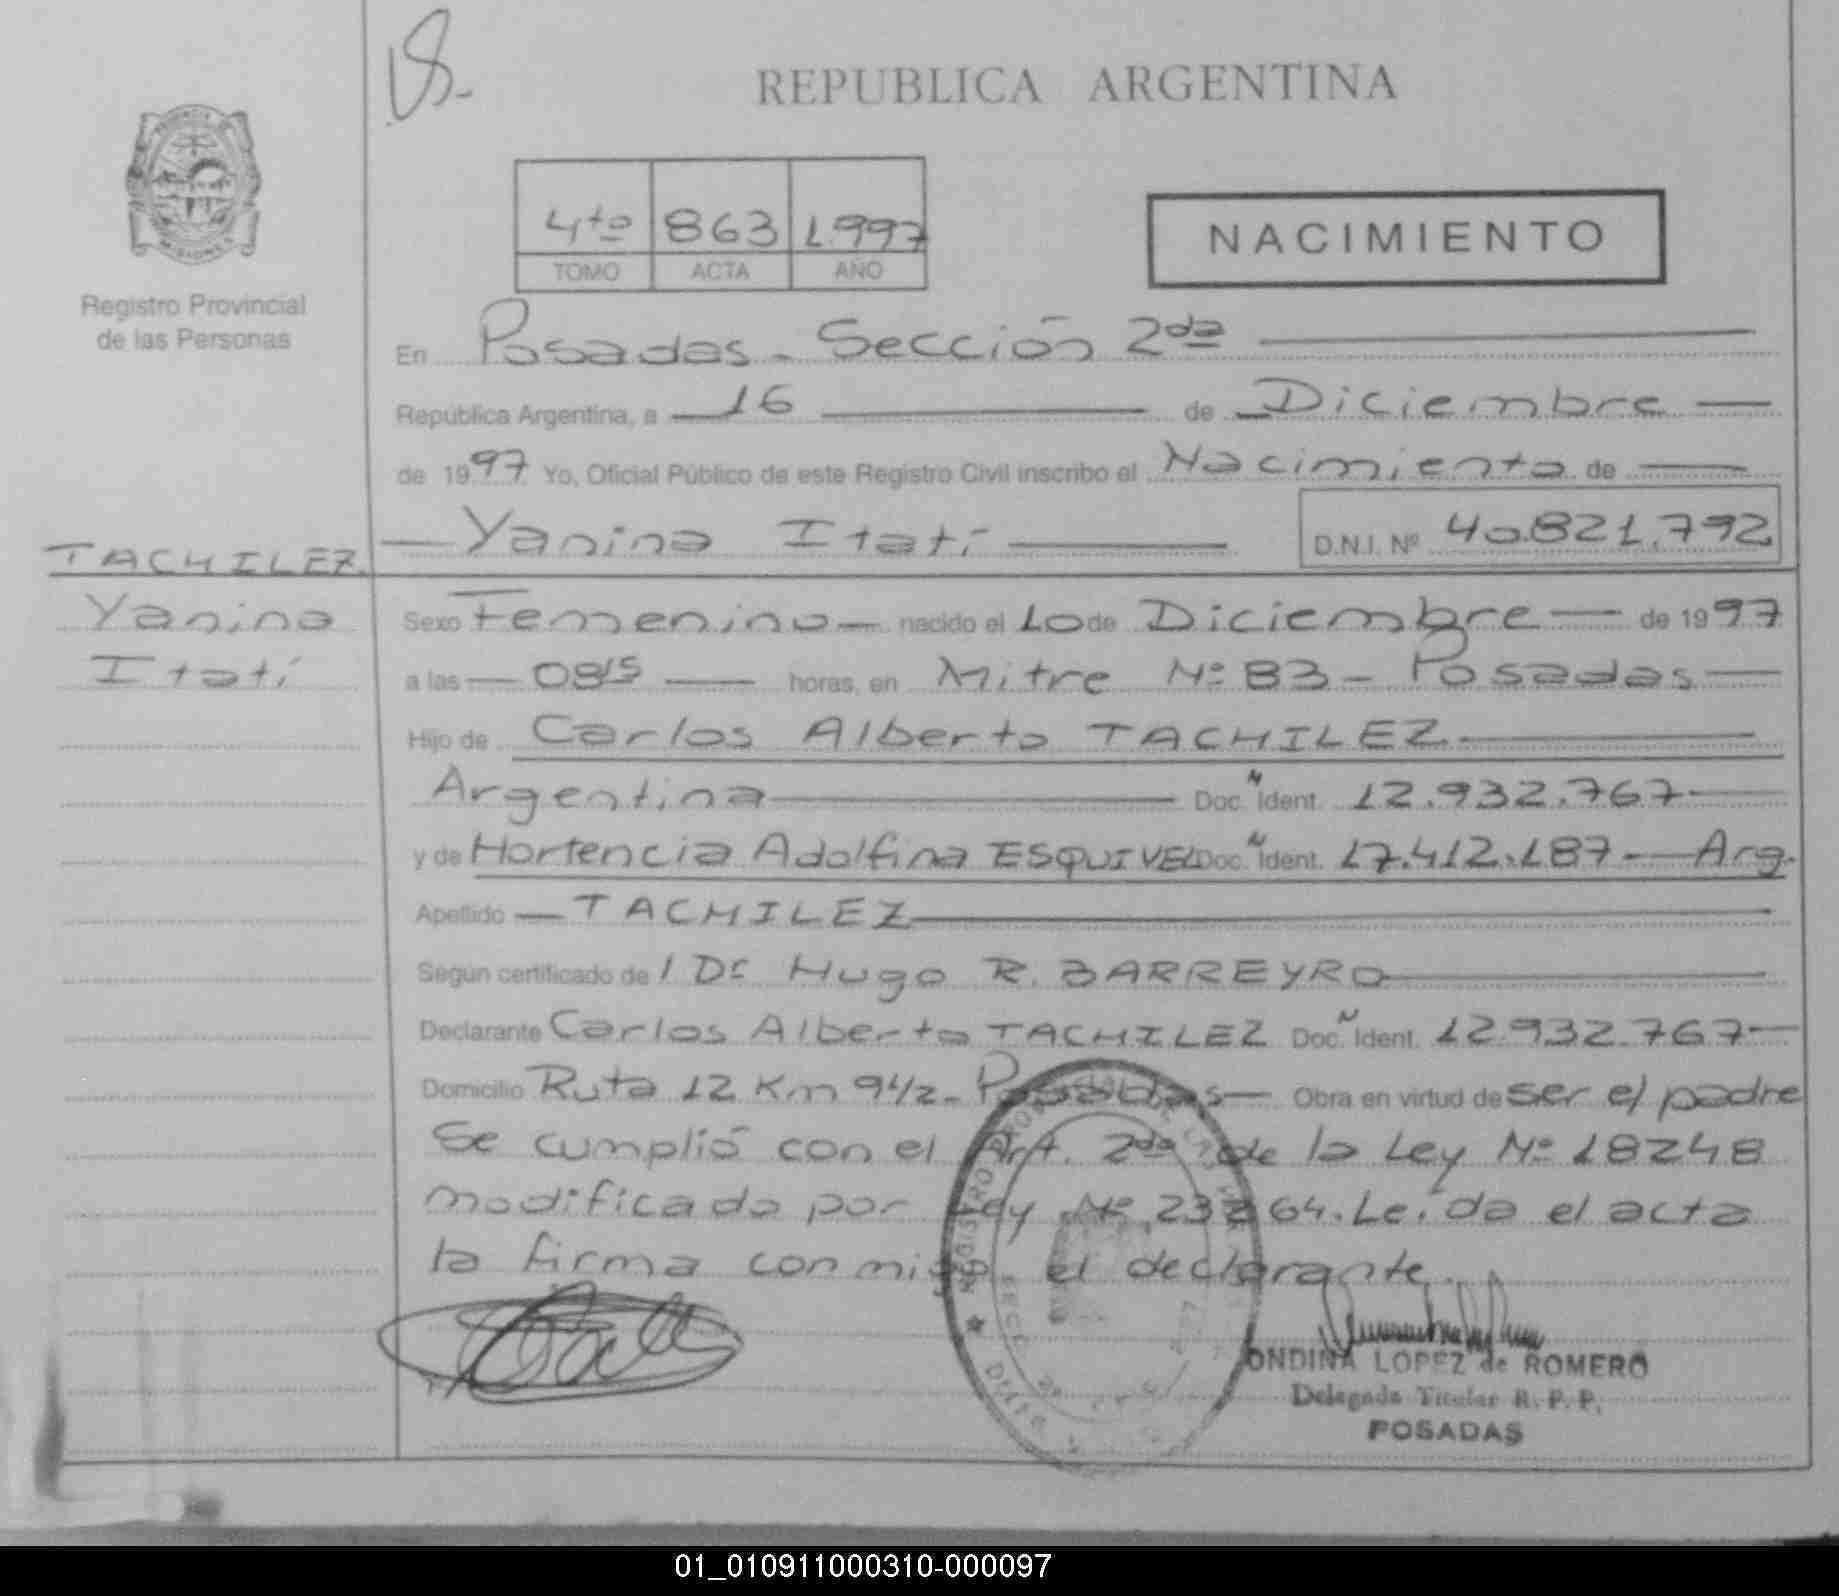 REPUBLICA ARGENTINA
4to 863 1.997
TOMO ACTA AÑO
NACIMIENTO
Registro Provincial
de las Personas
En Posadas - Sección 2da
República Argentina, a 16 de Diciembre
de 1997 Yo, Oficial Público de este Registro Civil inscribo el Nacimiento de
Yanina Itatí D.N.I. Nº 40.821.792
TACHILEZ
Yanina
Itatí
Sexo Femenino nacido el 10 de Diciembre de 1997
a las 0815 horas, en Mitre Nº 83 - Posadas
Hijo de Carlos Alberto TACHILEZ
Argentina Doc. Ident. 12.932.767
y de Hortencia Adolfina ESQUIVEL Doc. Ident. 17.412.187 - Arg.
Apellido TACHILEZ
Según certificado de l Dr Hugo R. BARREYRO
Declarante Carlos Alberto TACHILEZ Doc. Ident. 12.932.767
Domicilio Ruta 12 Km 9 1/2 - Posadas Obra en virtud de ser el padre
Se cumplió con el Art. 2do de la Ley Nº 18248
modificado por Ley Nº 23264. Leída el acta
la firma conmigo el declarante.
ONDINA LOPEZ de ROMERO
Delegada Titular R. P. P.
POSADAS
01_010911000310-000097